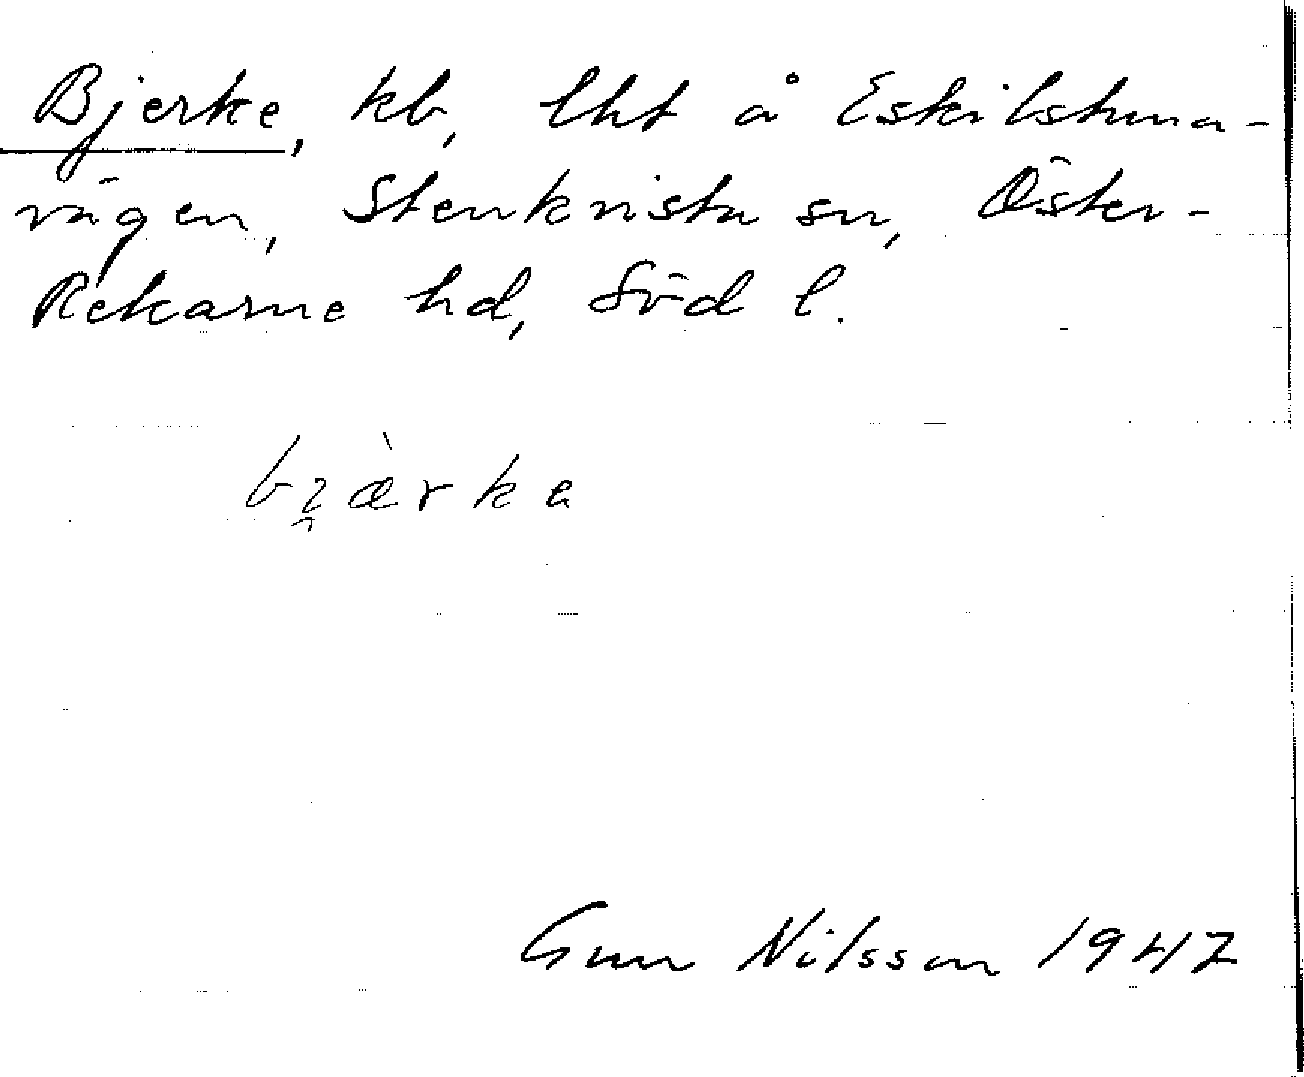 Bjerke, kb, lht å Eskilstuna-
vägen, Stenkvista sn, Öster-
Rekarne hd, Söd l.
bi̯æ̀rka
Gun Nilsson 1947